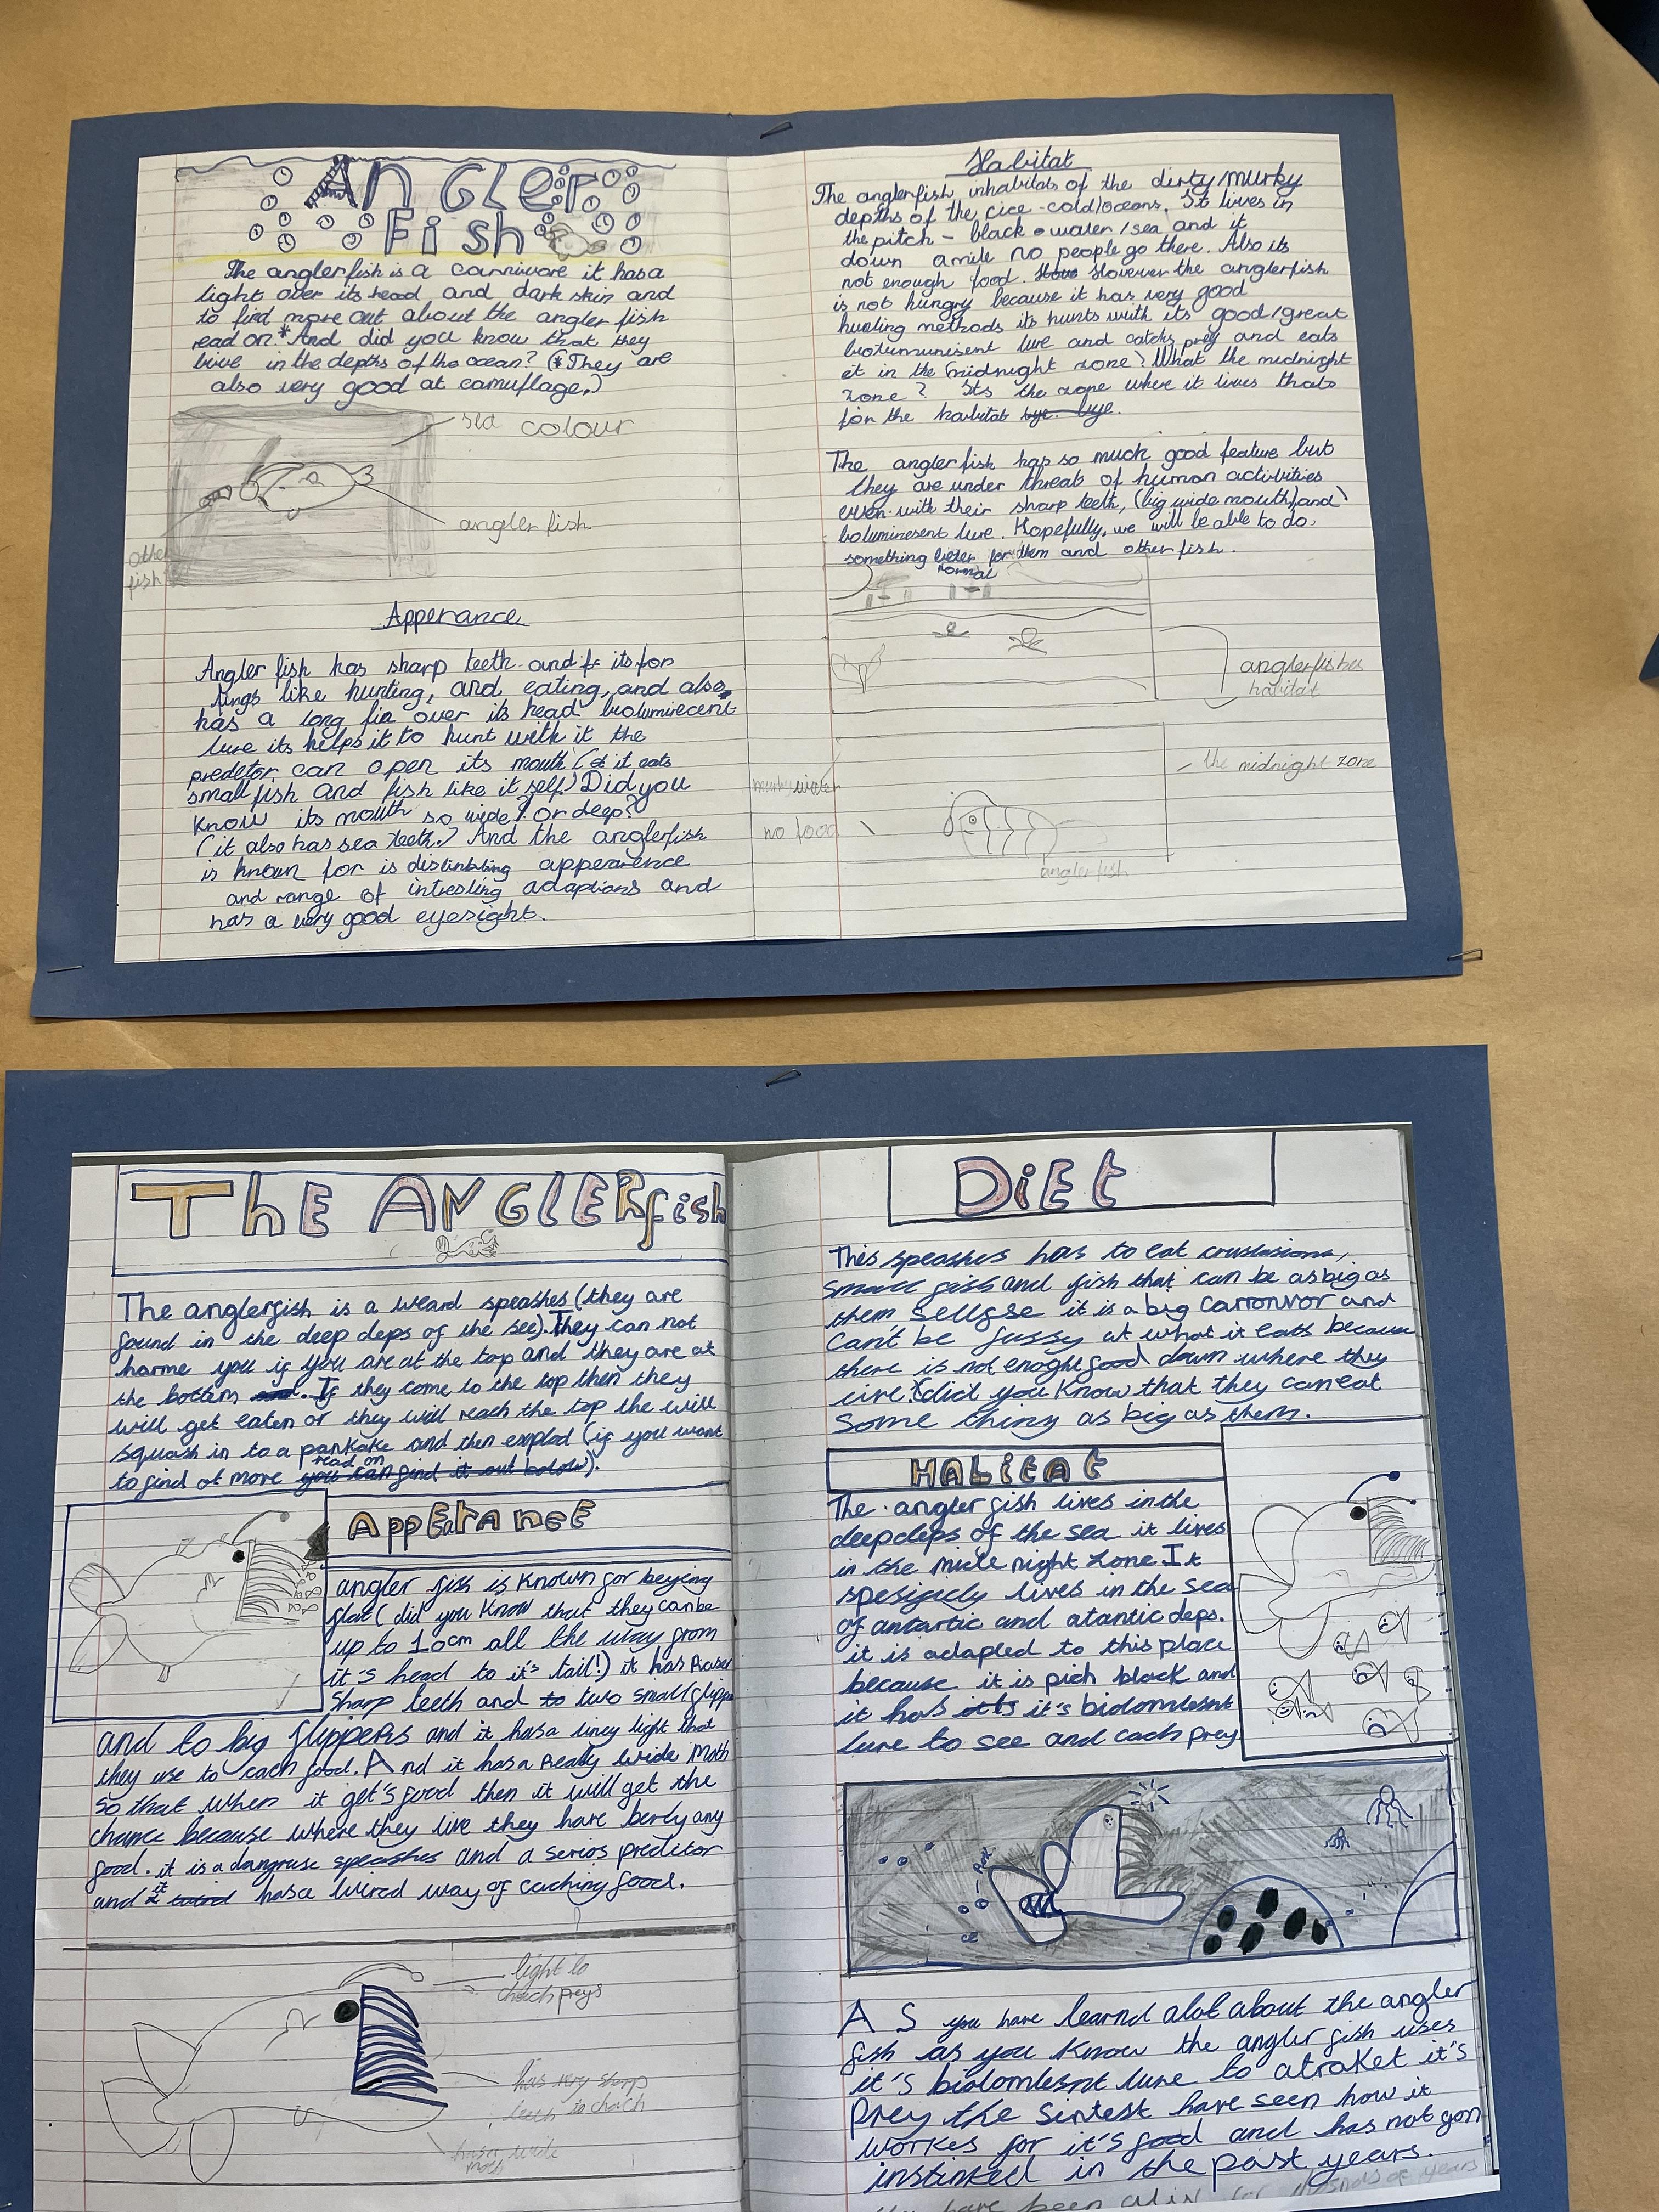 Angler
Fish
The anglerfish is a carnivore it has a
light over its head and dark skin and
to find more out about the angler fish
read on.* And did you know that they
live in the depths of the ocean? (*They are
also very good at camuflage.)
sea colour
angler fish
other
fish
Apperance
Angler fish has sharp teeth and its for
like hunting, and eating, and also
has a long fin over its head bioluminecent
lure its helps it to hunt with it the
predetor can open its mouth (it eats
small fish and fish like it self) Did you
know its mouth so wide? Or deep?
(it also has sea teeth.) And the anglerfish
is known for is appearence
and range of intresting adaptions and
has a very good eyesight.
Habitat
The anglerfish inhabitats of the dirty/murky
depths of the cice-cold/oceans. It lives in
the pitch-black water/sea and it
down a mile no people go there. Also its
not enough food. However the anglerfish
is not hungry because it has very good
hunting methods its hunts with its good/great
lure and catchs prey and eats
it in the (midnight zone) What the midnight
zone? Its the zone where it lives thats
for the habitat bye bye.
The anglerfish has so much good feature but
they are under threat of human activities
even with their sharp teeth, (big wide mouth) and
boluminesent lure. Hopefully, we will be able to do
something beter for them and other fish.
Normal
anglerfishes
habitat
the midnight zone
murky water
no food
anglerfish
The Anglerfish
The anglerfish is a weard speashes (they are
found in the deep deps of the see). They can not
harme you if you are at the top and they are at
the bottem and. If they come to the top then they
will get eaten or they will reach the top the will
squash in to a pankake and then explod (if you want
read on
to find ot more you can find it out below).
Appearance
angler fish is known for beying
flat (did you know that they can be
up to 10cm all the way from
it's head to it's tail!) it has Raser
sharp teeth and to two small flippe
and to big flippers and it has a tiney light that
they use to cach food. And it has a really wide moth
so that when it get's food then it will get the
chance because where they live they have berly any
food. it is a dangruse speashes and a serios preditor
it
and has a wired way of caching food.
light to
chach preys
has very sharp
teeth to chach
has a wide
moth
Diet
This speashes has to eat crustasions,
small fish and fish that can be as big as
them sellfse it is a big carronvor and
can't be fussy at what it eats because
there is not enoght food down where they
live.*(did you know that they can eat
some thing as big as them.
Habitat
The angler fish lives in the
deep deps of the sea it lives
in the mide night Zone. It
spesificly lives in the sea
of antartic and atantic deps.
it is adapted to this place
because it is pich black and
it has it's it's biolomlesnt
lure to see and cach prey
As you have learnd alot about the angler
fish as you know the angler fish uses
it's biolomlesnt lure to atraket it's
prey the sintest have seen how it
workes for it's food and has not gon
instinked in the past years.
have been for of years